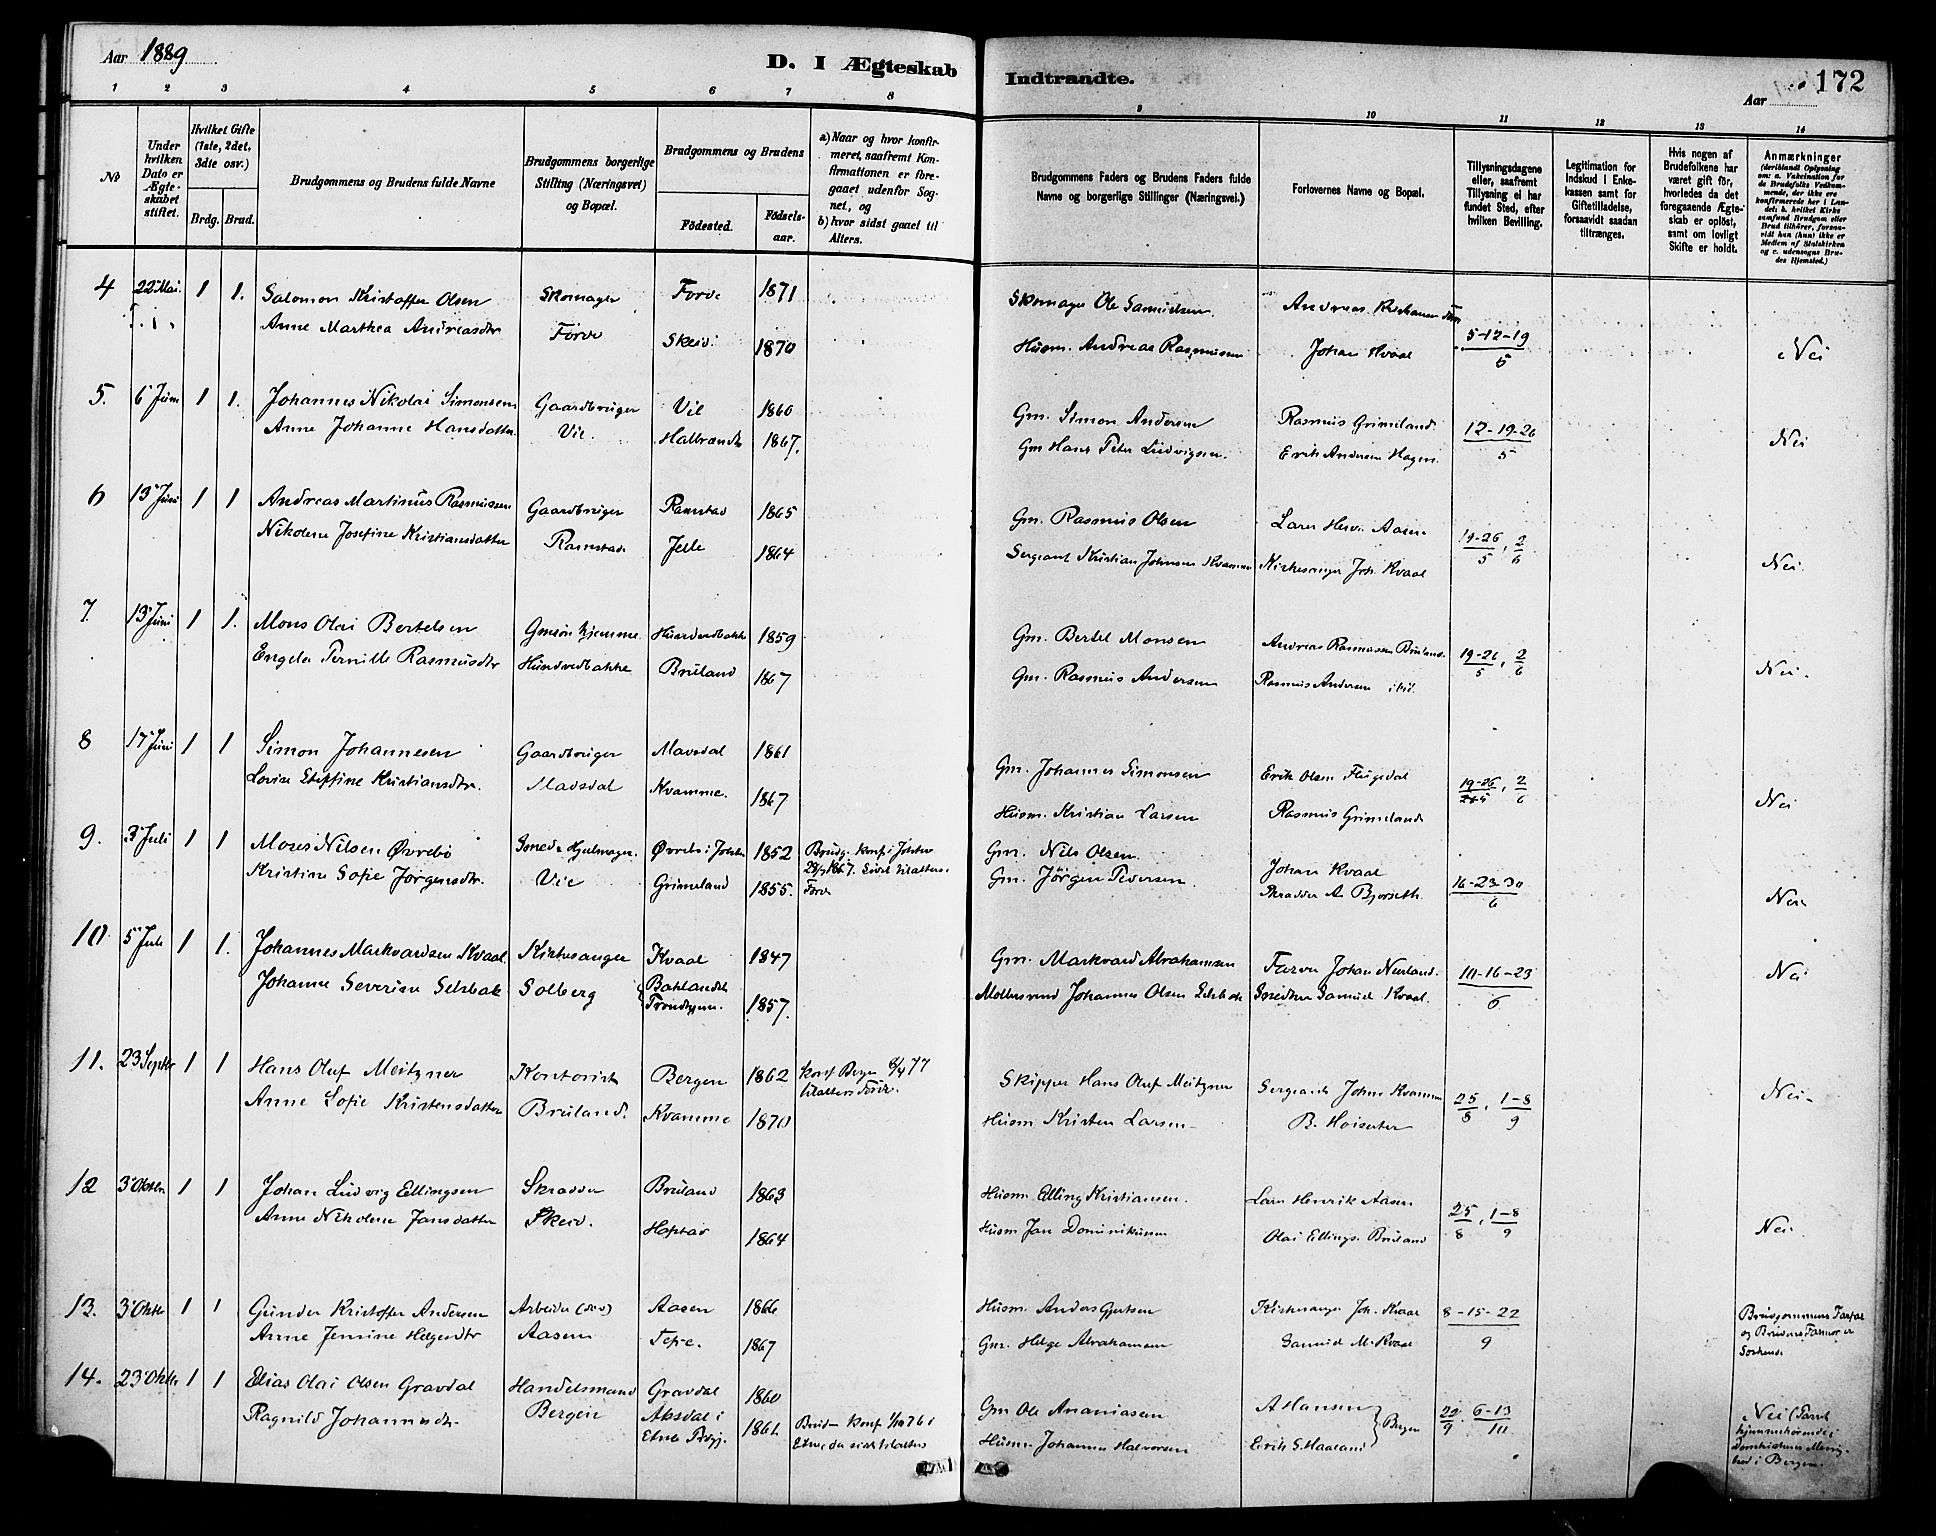 Aar 1889
D. I Ægteskab
Indtraadte.
Aar
172
1 2 3 4 5 6 7 8
9 10 11 12 13 14
No
Under hvilken Dato er Ægteskabet stiftet.
Hvilket Gifte (1ste, 2det, 3die osv.)
Brdg. Brud.
Brudgommens og Brudens fulde Navne
Brudgommens borgerlige Stilling (Næringsvei) og Bopæl.
Brudgommens og Brudens
Fødested.
Fødselsaar.
a) Naar og hvor konfirmeret, saafremt Konfirmationen er foregaaet udenfor Sognet, og
b) hvor sidst gaaet til Alters.
Brudgommens Faders og Brudens Faders fulde Navne og borgerlige Stillinger (Næringsvei.)
Forlovernes Navne og Bopæl.
Tillysningsdagene eller, saafremt Tillysning ei har fundet Sted, efter hvilken Bevilling.
Legitimation for Indskud i Enkekassen samt for Giftetilladelse, forsaavidt saadan tiltrænges.
Hvis nogen af Brudefolkene har været gift før, hvorledes da det foregaaende Ægteskab er opløst, samt om lovligt Skifte er holdt.
Anmærkninger (deriblandt Oplysning om: a. Vakcination for de Brudefolks Vedkommende, der ikke ere konfirmerede her i Landet; b. hvilket Kirkesamfund Brudgom eller Brud tilhører, forsaavidt han (hun) ikke er Medlem af Statskirken og c. udensogns Brudes Hjemsted.)
4 22 Mai 1 1. Salomon Kristoffer Olsen Skomager Førde 1871 Skomager Ole Samuelsen. Andreas Kristiansen
Anne Marthea Andreasdtr Førde Skei 1870 Husm. Andreas Rasmussen Johan Kvaal 5-12-19/5 Nei
5. 6 Juni 1 1. Johannes Nikolai Simonsen Gaardbruger Vie 1860 Gm. Simon Andersen Rasmus Grimeland
Anne Johanne Hansdatter Vie. Halbrendt 1867. Gm Hans Peter Ludvigsen. Erik Andersen Hagen. 12-19-26/5 Nei
6 13 Juni 1 1 Andreas Martinus Rasmussen Gaardbruger Ramstad 1865 Gm. Rasmus Olsen Lars Henr. Aasen
Nikoline Josefine Kristiansdatter Ramstad Jelle 1864 Sergeant Kristian Johnsen Kvamme Kirkesanger Joh. Kvaal 19-26/5, 2/6 Nei.
7. 13 Juni 1 1. Mons Olai Bertelsen Gmsøn hjemme. Hundvedbakke 1859 Gm. Bertel Monsen Andreas Rasmussen Bruland.
Engela Pernille Rasmusdtr Hundvedbakke Bruland 1867 Gm. Rasmus Andersen Rasmus Andersen ibid. 19-26/5, 2/6 Nei.
8 17 Juni 1 1 Simon Johannesen Gaardbruger Mavsdal 1861 Gm. Johannes Simonsen Erik Olsen Flugedal
Lovise Steffine Kristiansdtr. Mavsdal Kvamme. 1867 Husm. Kristian Larsen Rasmus Grimeland 19-26/5, 2/6 Nei
9. 3 Juli 1 1 Moses Nilsen Øvrebø Smed & Hjulmager. Øvrebø i Jølster 1852 Brudg. konf i Jølster Gm. Nils Olsen. Johan Kvaal
Kristine Sofie Jørgensdtr. Vie Grimeland 1855. 1867. Sidst tilalters Førde Gm. Jørgen Pedersen. Skrædder A. Bjørseth. 16-23-30/6 Nei.
10. 5 Juli 1 1. Johannes Markvardsen Kvaal Kirkesanger Kvaal 1847 Gm. Markvard Abrahamsen Farver Johan Neuland.
Johanne Severine Selsbak Solberg Baklandet Trondhjem. 1857. Møllersvend Johannes Olsen Selsbak Snedker Samuel Kvaal. 10-16-23/6 Nei
11. 23 Septbr 1 1 Hans Oluf Meitzner Kontorist Bergen 1862 konf Bergen 8/4 77 Skipper Hans Oluf Meitzner Sergeant Johns Kvamme
Anne Sofie Kristensdatter Bruland. Kvamme 1870 tilalters Førde. Husm. Kristen Larsen B. Hoisæter 25/8, 1-8/9 Nei.
12 3 Oktbr. 1 1 Johan Ludvig Ellingsen Skrædder Bruland 1863 Husm. Elling Kristiansen. Lars Henrik Aasen
Anne Nikoline Jansdatter Skei. Hopstad 1864 Husm. Jan Dominikusen Olai Ellings. Bruland 25/8, 1-8/9 Nei.
13. 3 Oktbr 1 1 Gunder Kristoffer Andersen Arbeider Aasen 1866 Husm. Anders Gjertsen Kirkesanger Joh. Kvaal 8-15-22/9
Anne Jensine Helgesdtr Aasen Tefre. 1867 Gm. Helge Abrahamsen Samuel M. Kvaal Brudgommens Farfar og Brudens Farmor er Søskende
14. 23 Oktbr. 1 1 Elias Olai Olsen Gravdal Handelsmand Gravdal 1860 Gm Ole Ananiasen A Hansen
Ragnild Johannesdtr. Bergen Aksdal i Etne 1861. Bruden konf 1/10 76 i Etne, da sidst tilalters Husm. Johannes Halvorsen Erik S. Haaland } Bergen 29/9. 6-13/10
Nei (Parret hjemmehørende i Domkirkens Menighed i Bergen.